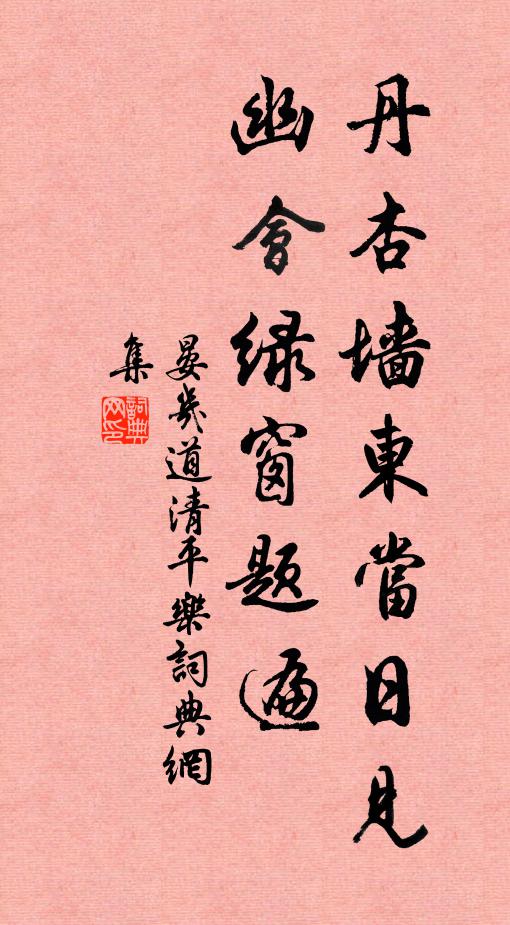 丹杏墻東當日見
幽會绿窗题遍
晏幾道清平樂詞典網
集
詞典
网印